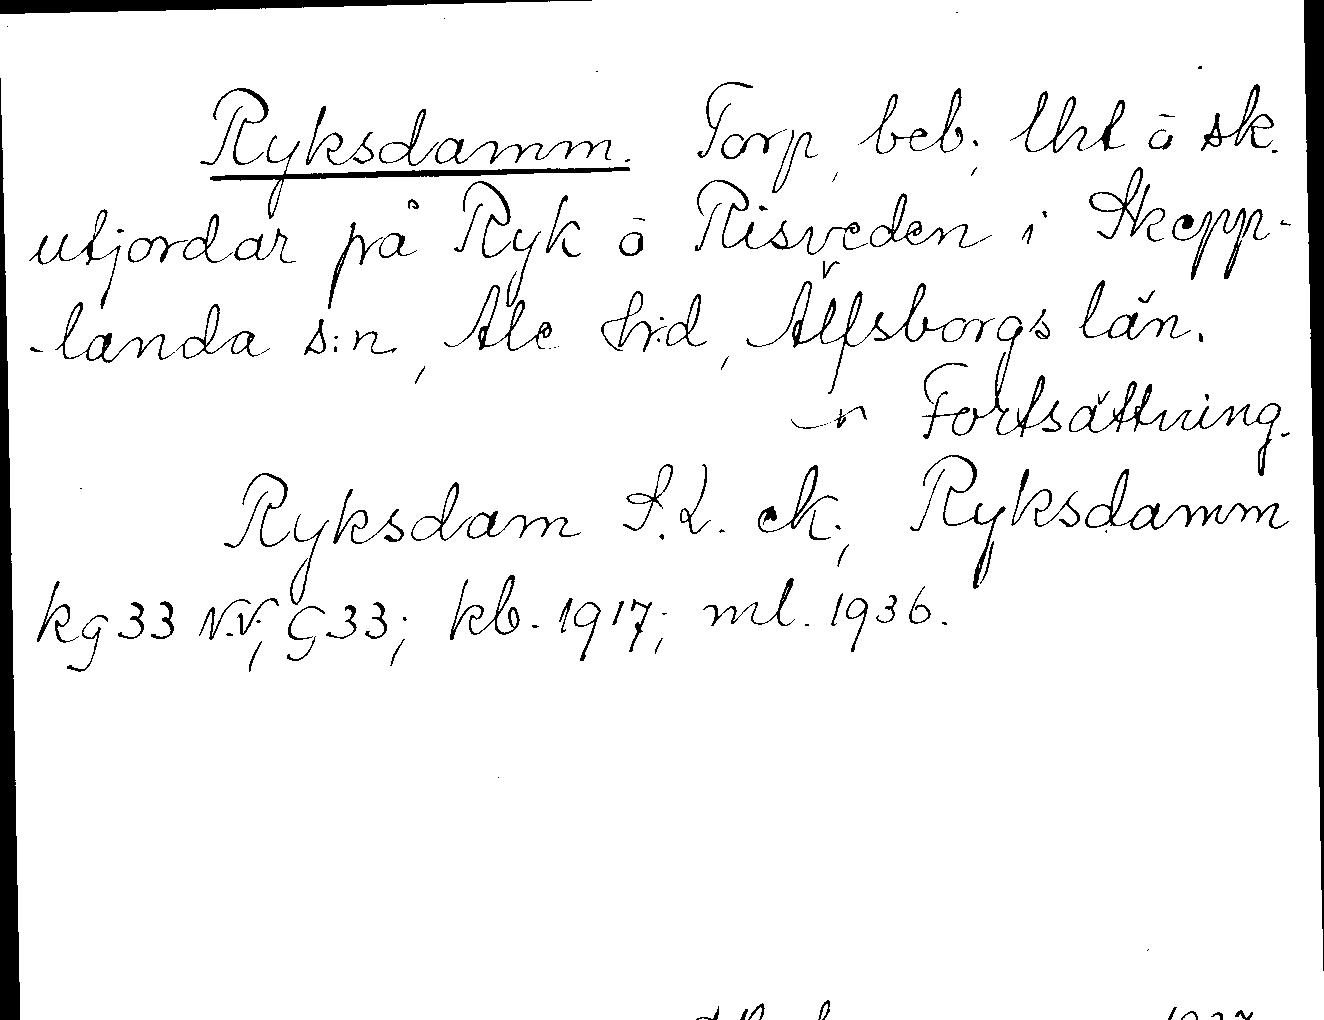 Ryksdamm. Torp, beb. Uht ō sk.
utjordar på Ryk ō Risveden i Skepp-
-landa s:n, Ale hrd, Älfsborgs län.
Fortsättning.
Ryksdam S.L. ek., Ryksdamm
kg 33 N.V., G33; kb. 1917; ml. 1936.